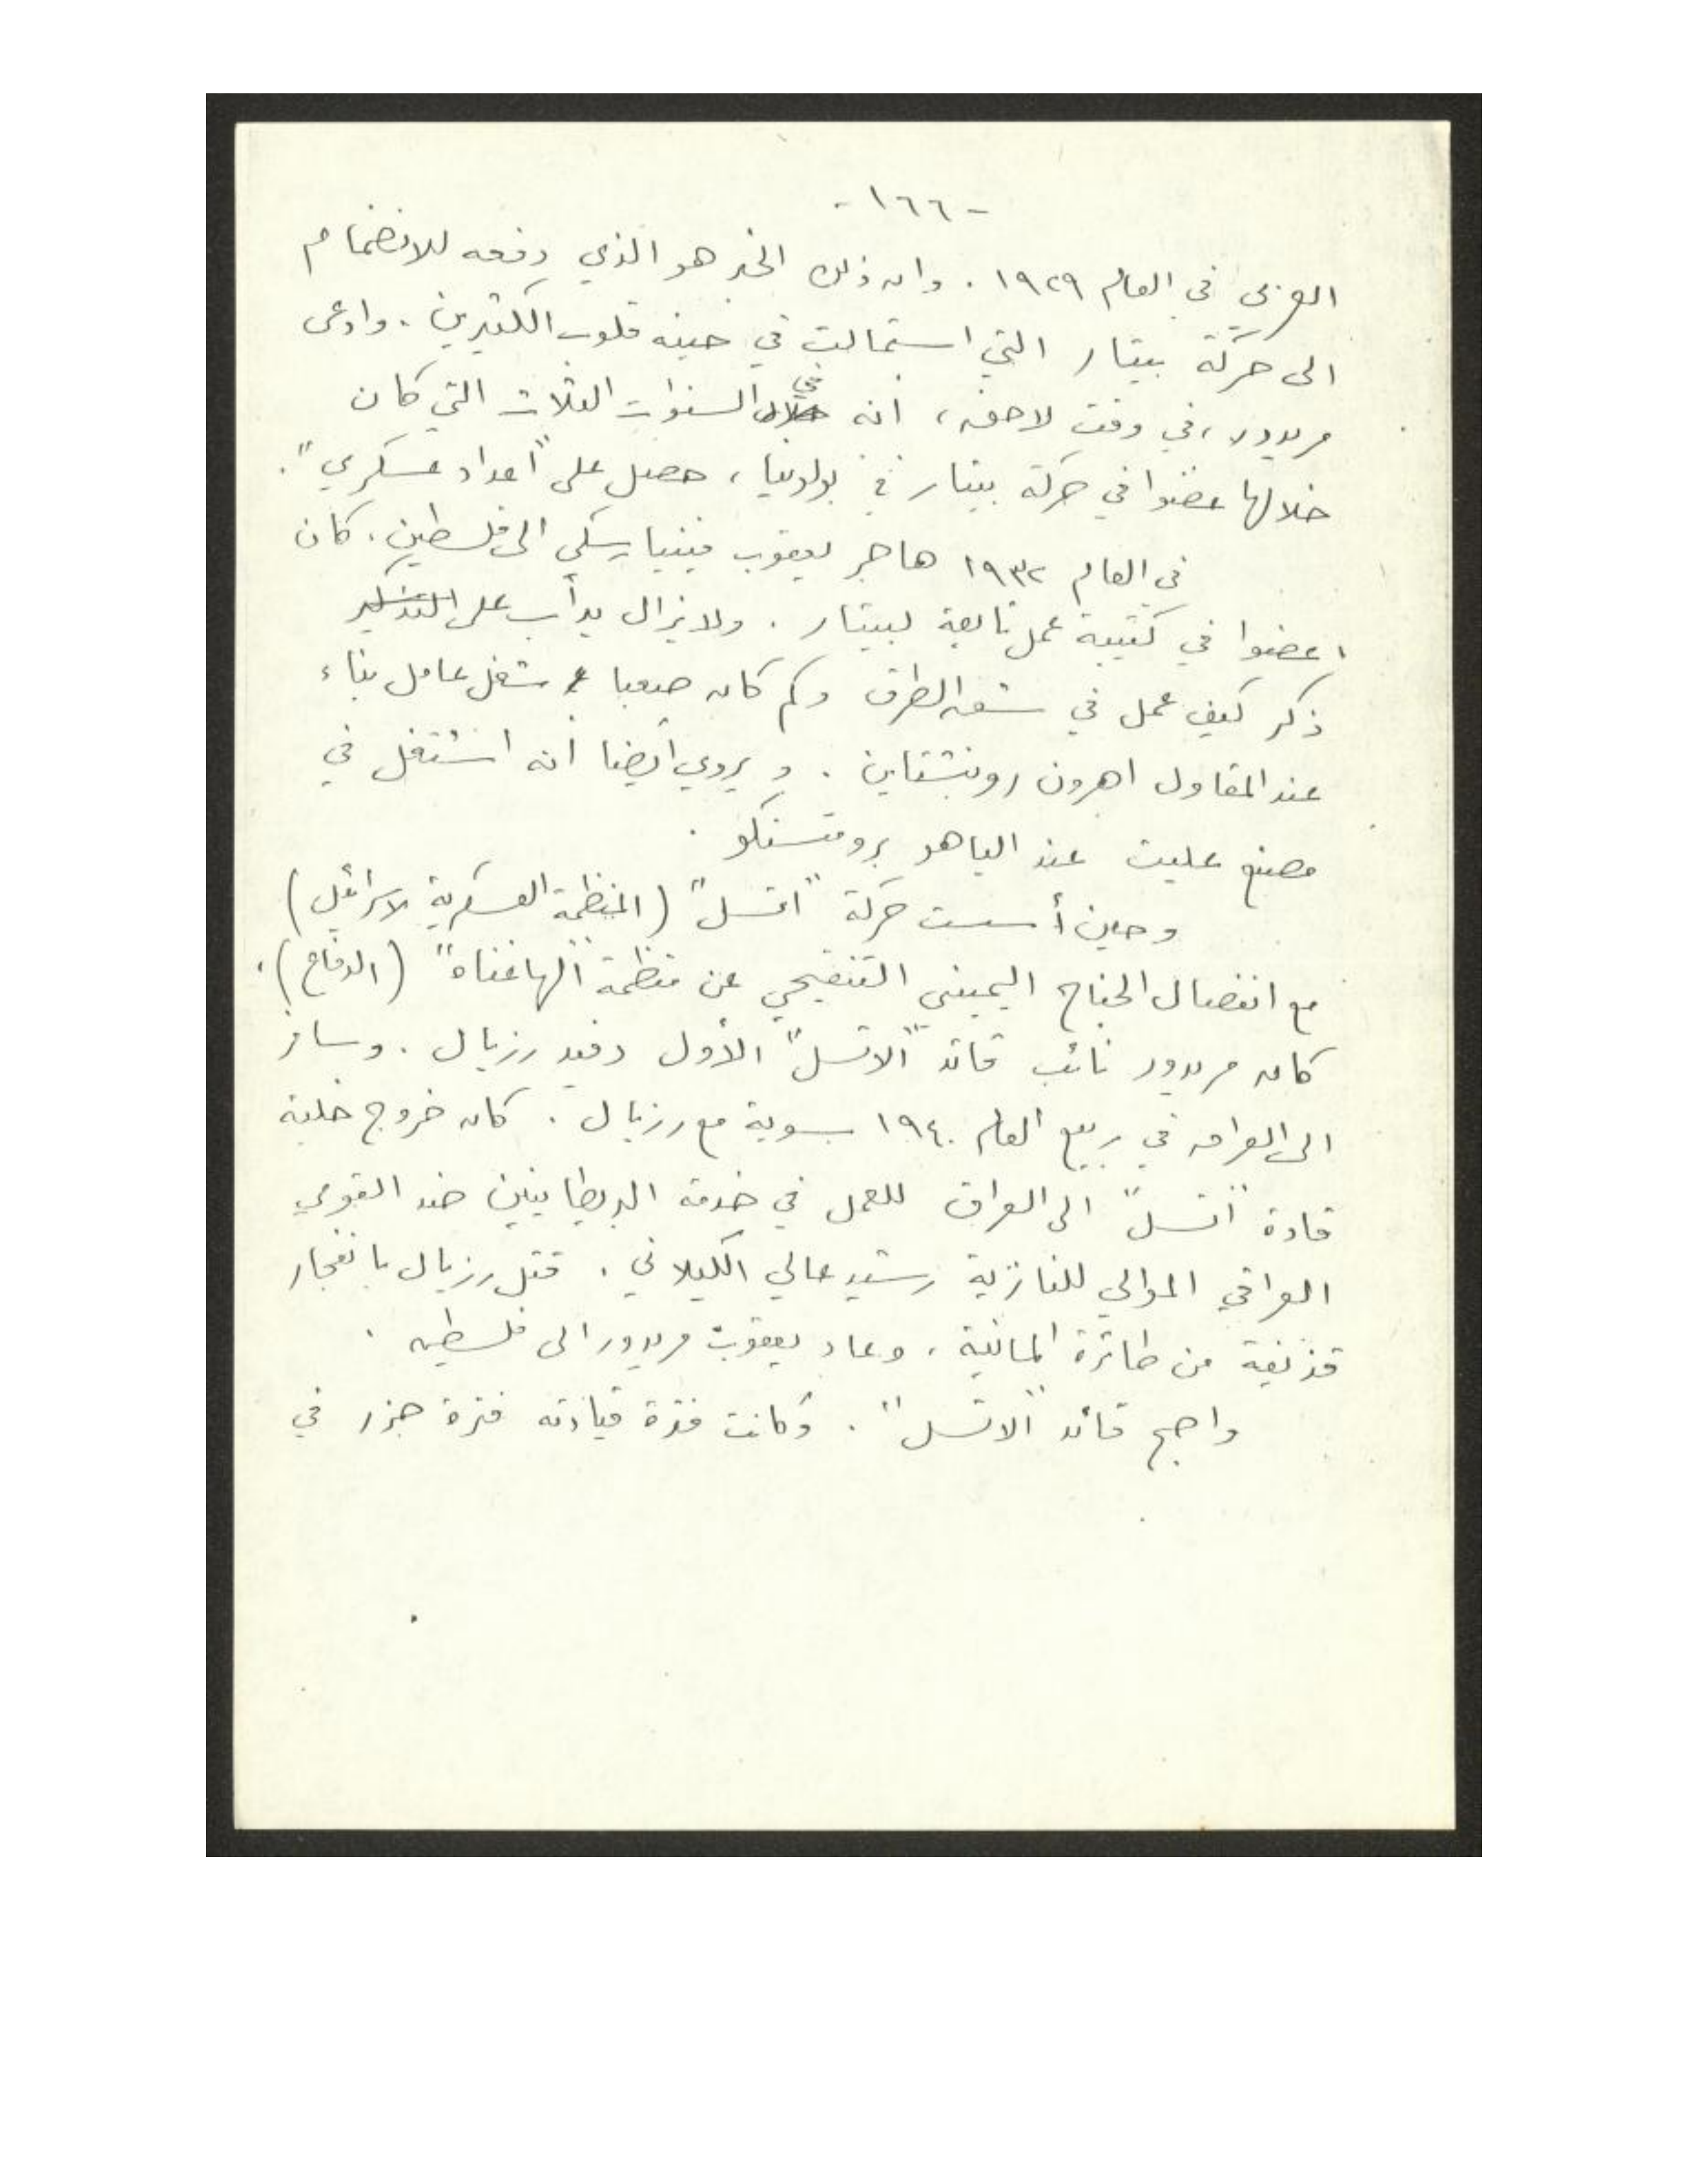 -١٦٦-
العربي في العام ١٩٢٩. وان ذلك الخبر هو الذي دفعه للانضمام
الى حركة بيتار التي استمالت في حينه قلوب الكثيرين. وادعى
مريدور، في وقت لاحق، انه في السنوات الثلاث التي كان
خلالها عضوا في حركة بيتار في بولونيا، حصل على "اعداد عسكري".
في العام ١٩٣٢ هاجر يعقوب فينيارسكي الى فلسطين. كان
عضوا في كتيبة عمل تابعة لبيتار. ولا يزال يدأب على التذكير
ذكر كيف عمل في شق الطرق وكم كان صعبا شغل عامل بناء
عند المقاول اهرون روبنشتاين. و يروي أيضا أنه اشتغل في
مصنع عليت عند الياهو برومتسنكو.
وحين أسست حركة "اتسل" (المنظمة العسكرية لاسرائيل)
مع انفصال الجناح اليميني التنقيحي عن منظمة "الهاغناه" (الدفاع)،
كان مريدور نائب قائد "الاتسل" الأول دفيد رزيال. وسافر
الى العراق في ربيع العام ١٩٤٠ سوية مع رزيال. كان خروج خلية
قادة "اتسل" الى العراق للعمل في خدمة البريطانيين ضد القومي
العراقي الموالي للنازية رشيد عالي الكيلاني. قتل رزيال بانفجار
قذيفة من طائرة المانية، وعاد يعقوب مريدور الى فلسطين.
واصبح قائد "الاتسل". وكانت فترة قيادته فترة جزر في